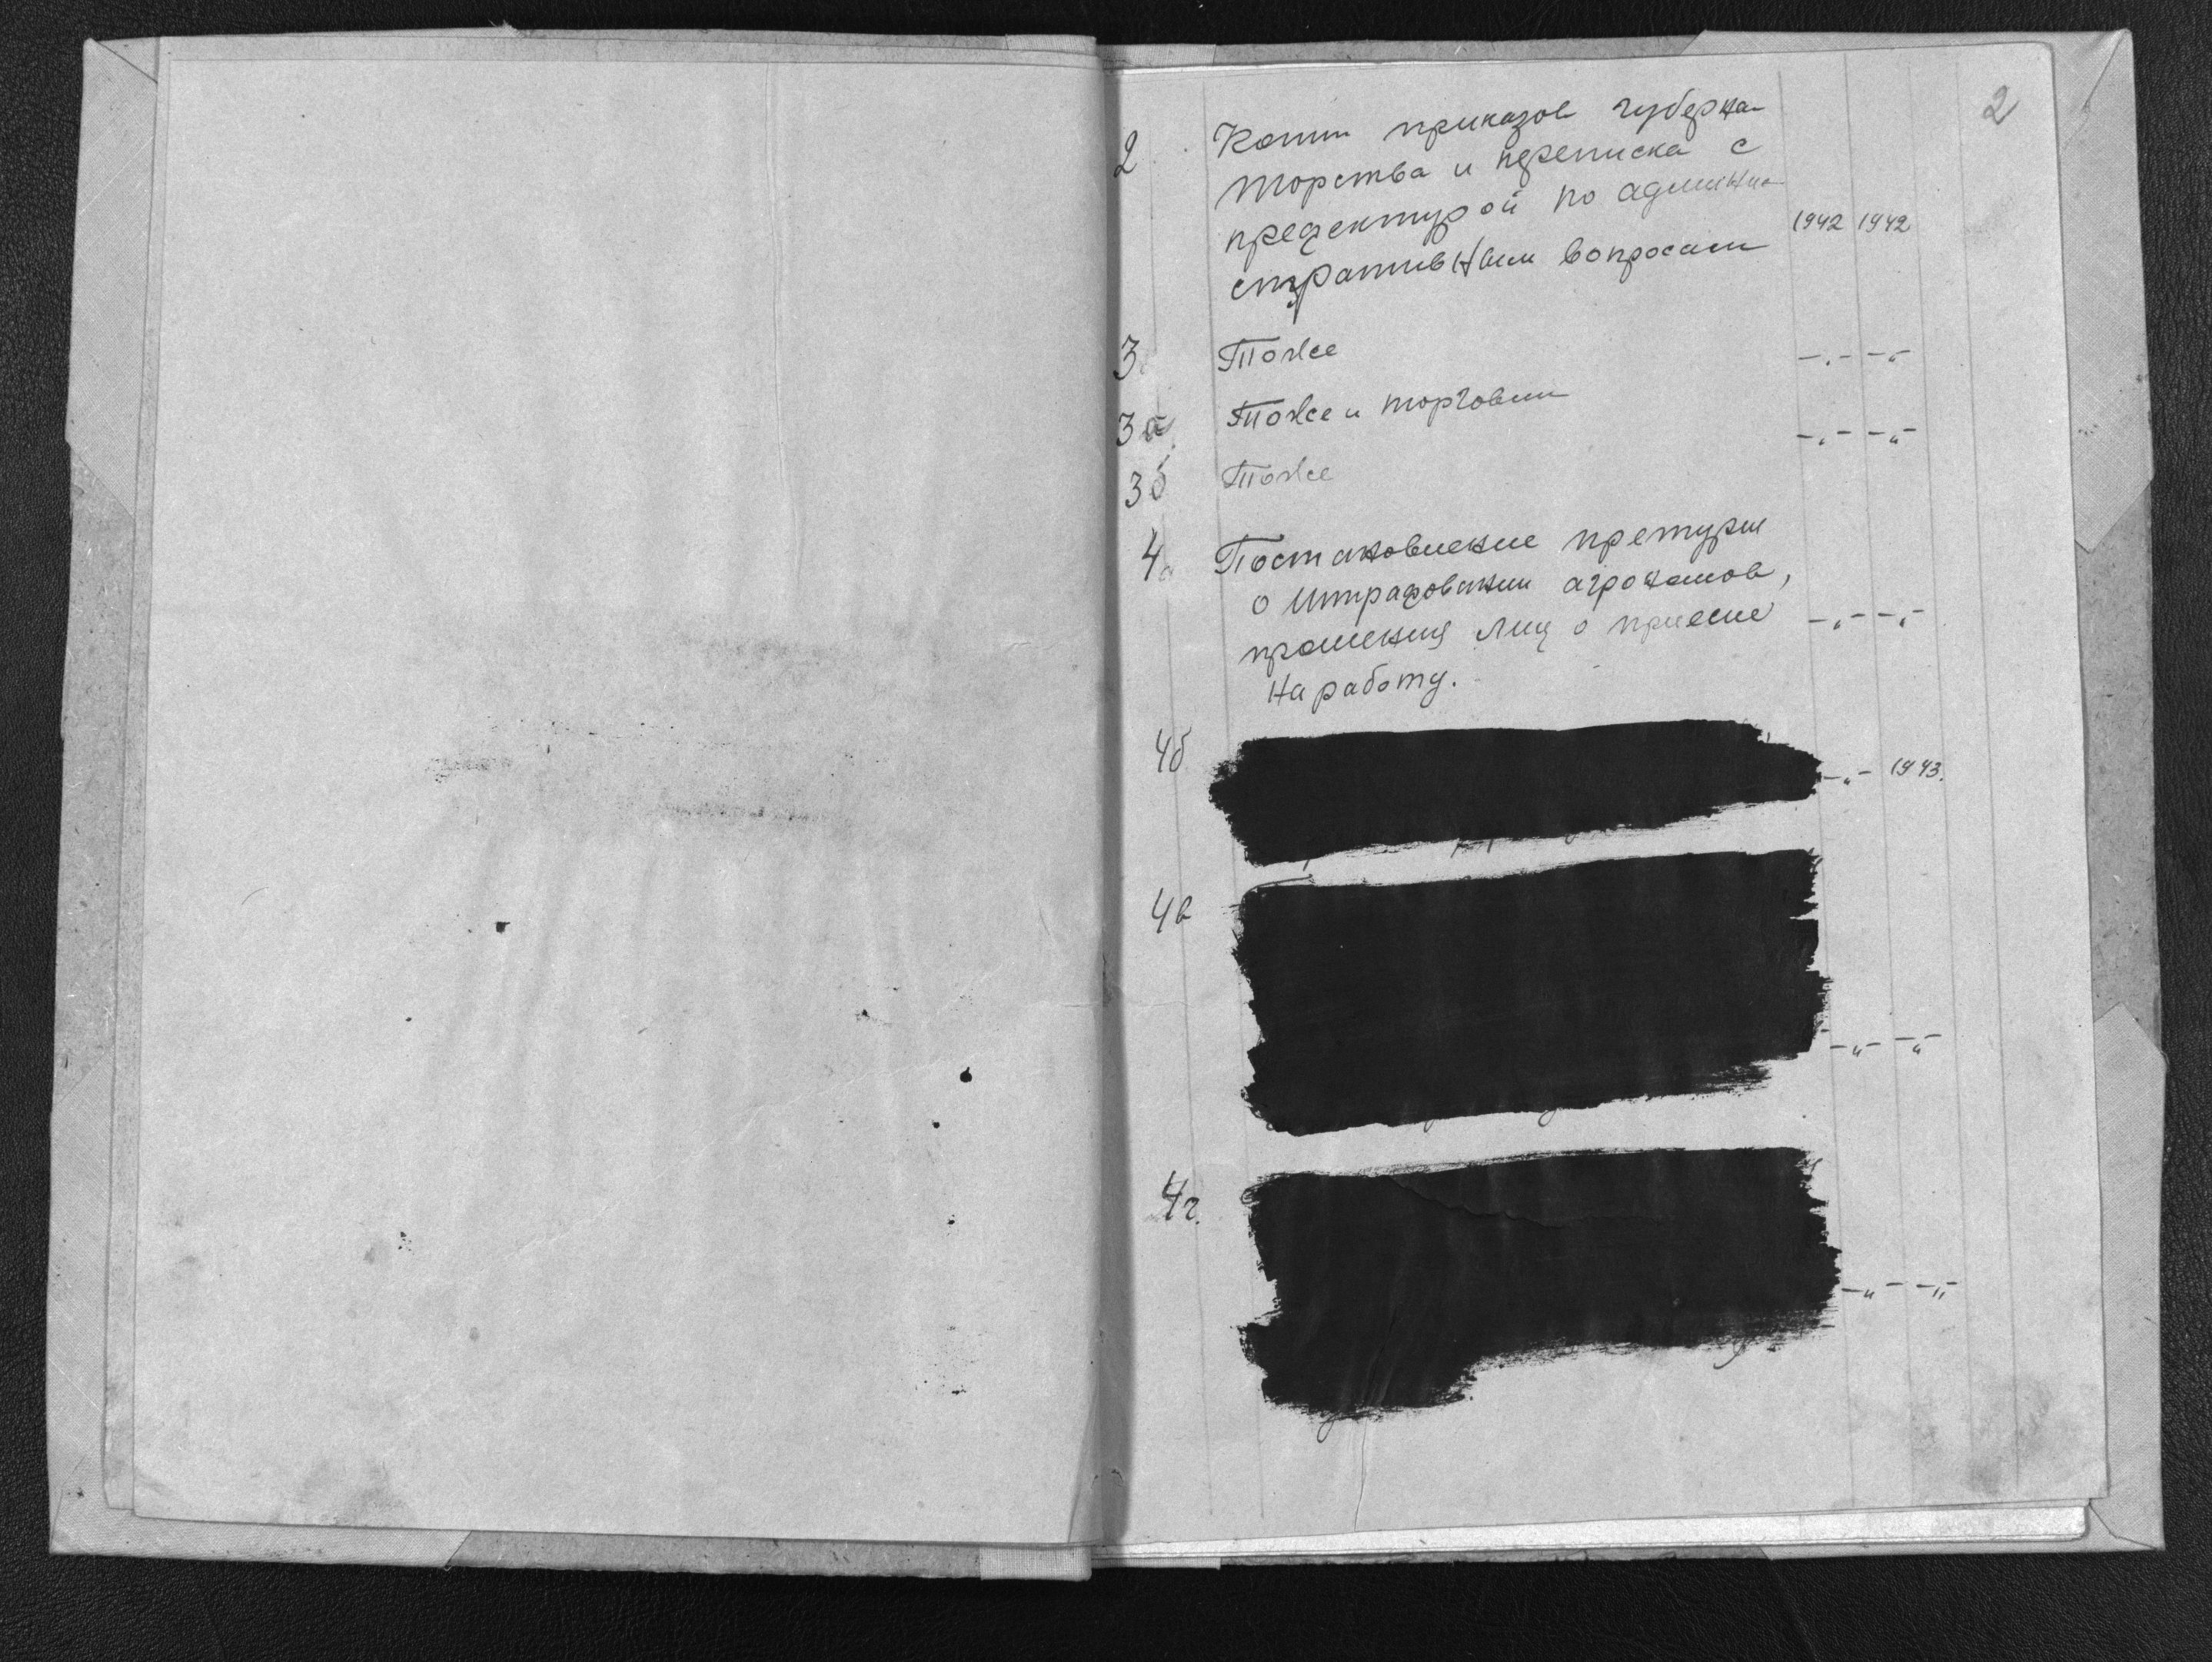 2
2 Копии приказов губерна-
торства и переписка с
префектурой по админи-
стративным вопросам 1942 1942
3 Тоже -„- -„-
3а Тоже и торговли -„- -„-
3б Тоже
4а Постановление претуры
о штрафовании агрономов,
прошения лиц о приеме -„- -„-
на работу.
4б -„- 1943.
4в -„- -„-
4г. -„- -„-